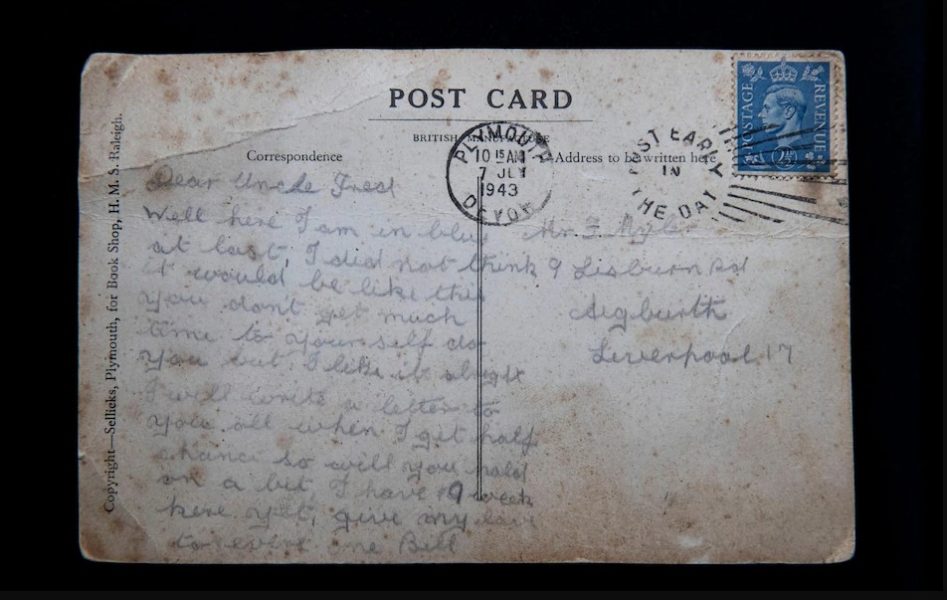 POST CARD
BRITISH MANUFACTURE
Correspondence
Address to be written here
PLYMOUTH
10 15 AM
7 JLY
1943
DEVON
POST EARLY
IN
THE DAY
POSTAGE
REVENUE
2½D
Copyright—Sellicks, Plymouth, for Book Shop, H. M. S. Raleigh.
Dear Uncle Fred
Well here I am in blue
at last, I did not think
it would be like this
you don't get much
time to yourself do
you but I like it alright
I will write a letter to
you all when I get half
chance so will you hold
on a bit, I have 9 week
here yet, give my love
to every one Bill
Mr F
9 Lisburn Rd
Aigburth
Liverpool 17